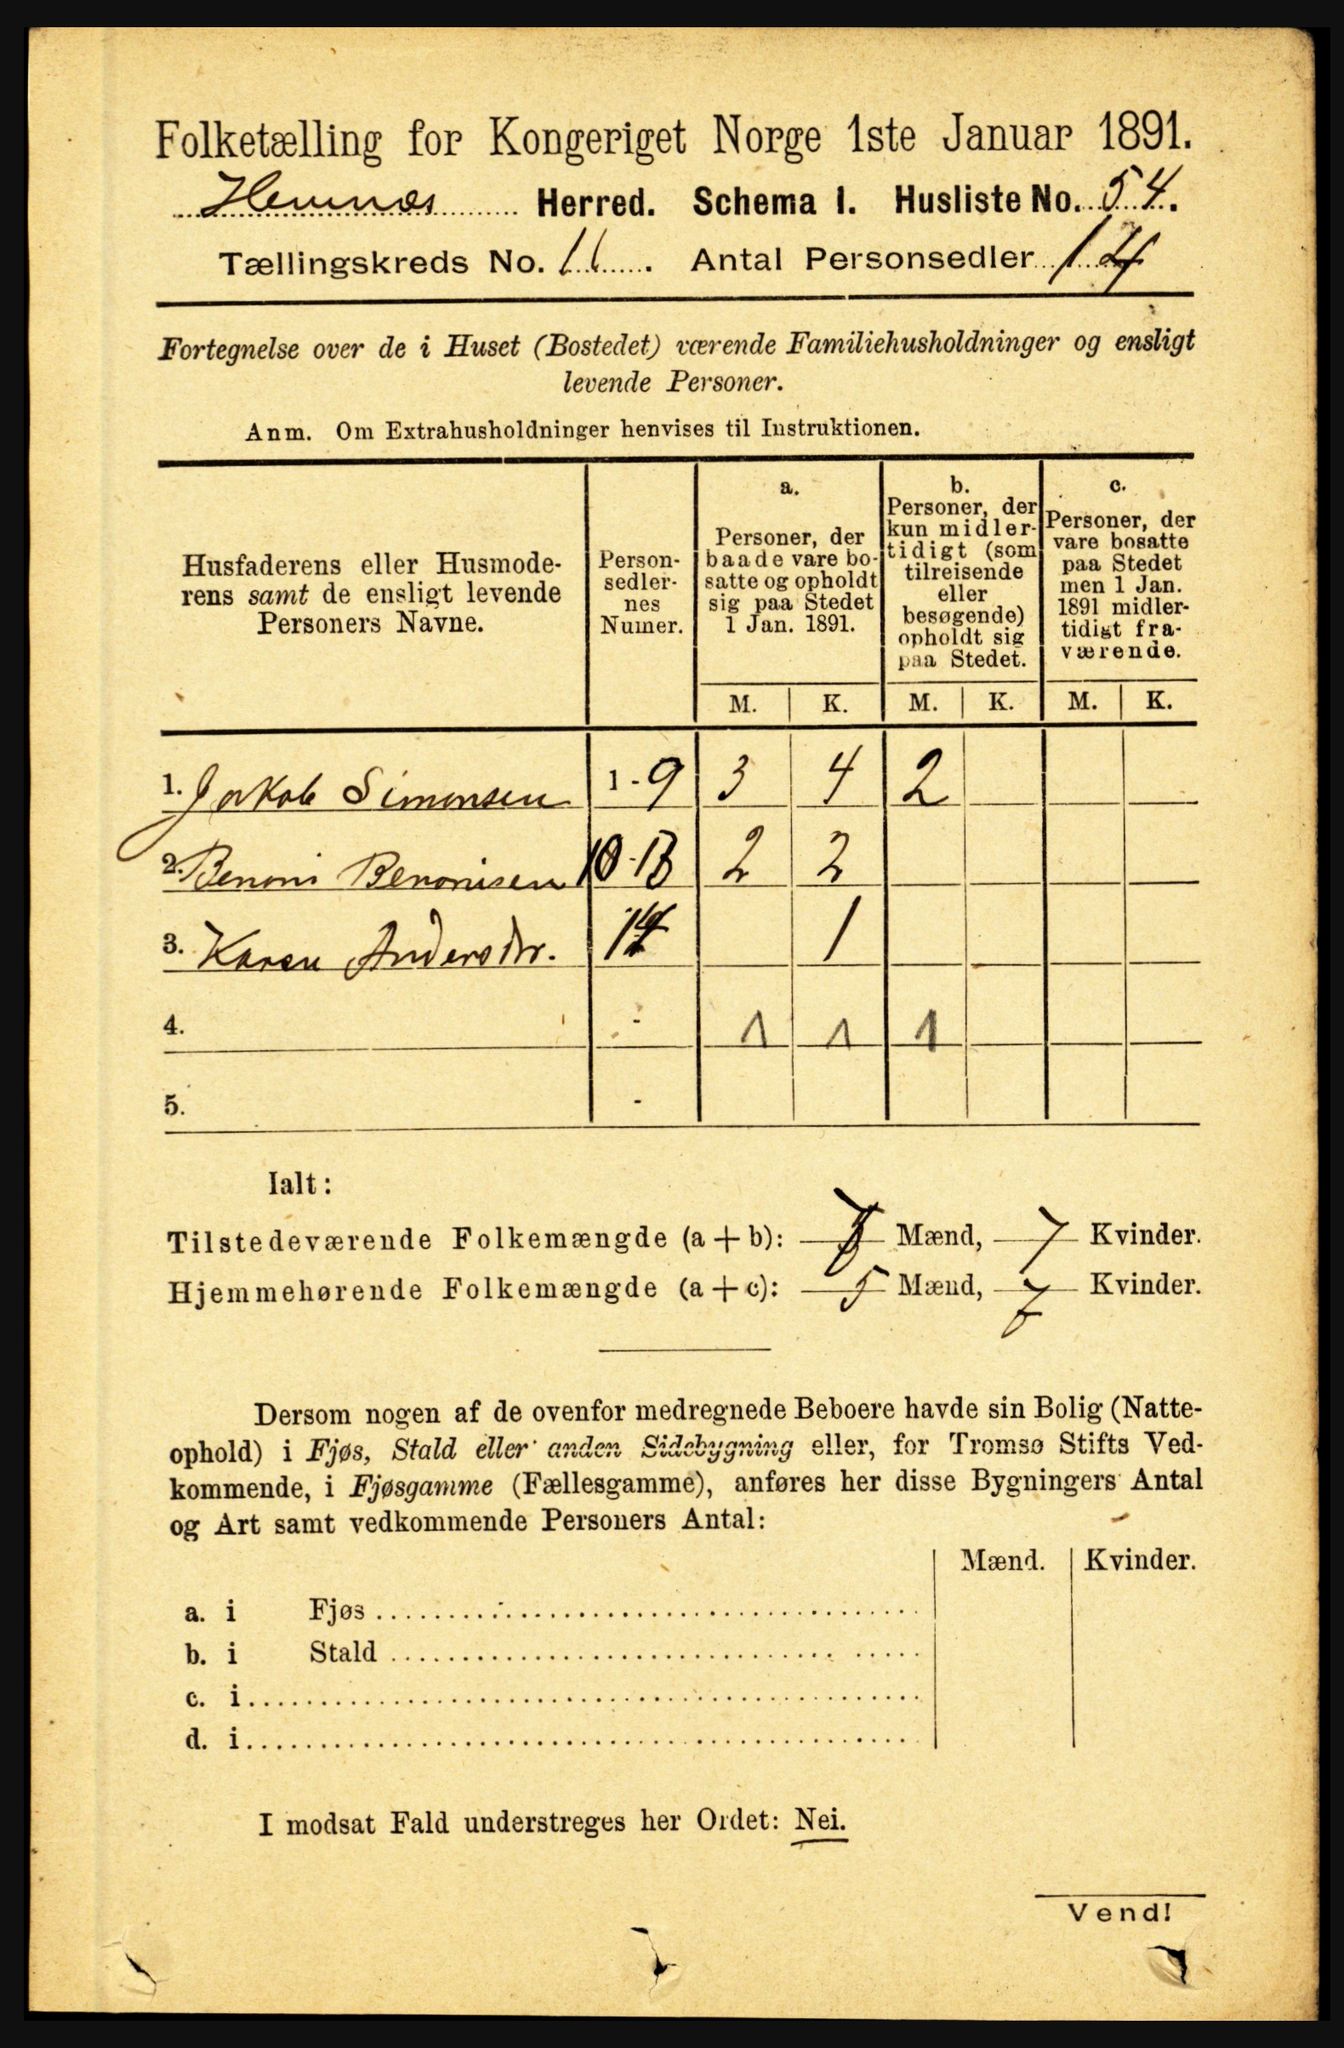 Folketælling for Kongeriget Norge 1ste Januar 1891.
Hemnæs Herred. Schema I. Husliste No. 54.
Tællingskreds No. 11. Antal Personsedler 14
Fortegnelse over de i Huset (Bostedet) værende Familiehusholdninger og ensligt
levende Personer.
Anm. Om Extrahusholdninger henvises til Instruktionen.
Husfaderens eller Husmode-
rens samt de ensligt levende
Personers Navne.
Person-
sedler-
nes
Numer.
a.
Personer, der
baade vare bo-
satte og opholdt
sig paa Stedet
1 Jan. 1891.
b.
Personer, der
kun midler-
tidigt (som
tilreisende
eller
besøgende)
opholdt sig
paa Stedet.
c.
Personer, der
vare bosatte
paa Stedet
men 1 Jan.
1891 midler-
tidigt fra-
værende.
M. K. M. K. M. K.
1. Jakob Simonsen 1-9 3 4 2
2. Benoni Benonisen 10-13 2 2
3. Karen Andersdtr. 14 1
4. - 1 1 1
5. -
Ialt:
Tilstedeværende Folkemængde (a + b): 7 Mænd, 7 Kvinder.
Hjemmehørende Folkemængde (a + c): 5 Mænd, 7 Kvinder.
Dersom nogen af de ovenfor medregnede Beboere havde sin Bolig (Natte-
ophold) i Fjøs, Stald eller anden Sidebygning eller, for Tromsø Stifts Ved-
kommende, i Fjøsgamme (Fællesgamme), anføres her disse Bygningers Antal
og Art samt vedkommende Personers Antal:
Mænd. Kvinder.
a. i Fjøs
b. i Stald
c. i
d. i
I modsat Fald understreges her Ordet: Nei.
Vend!